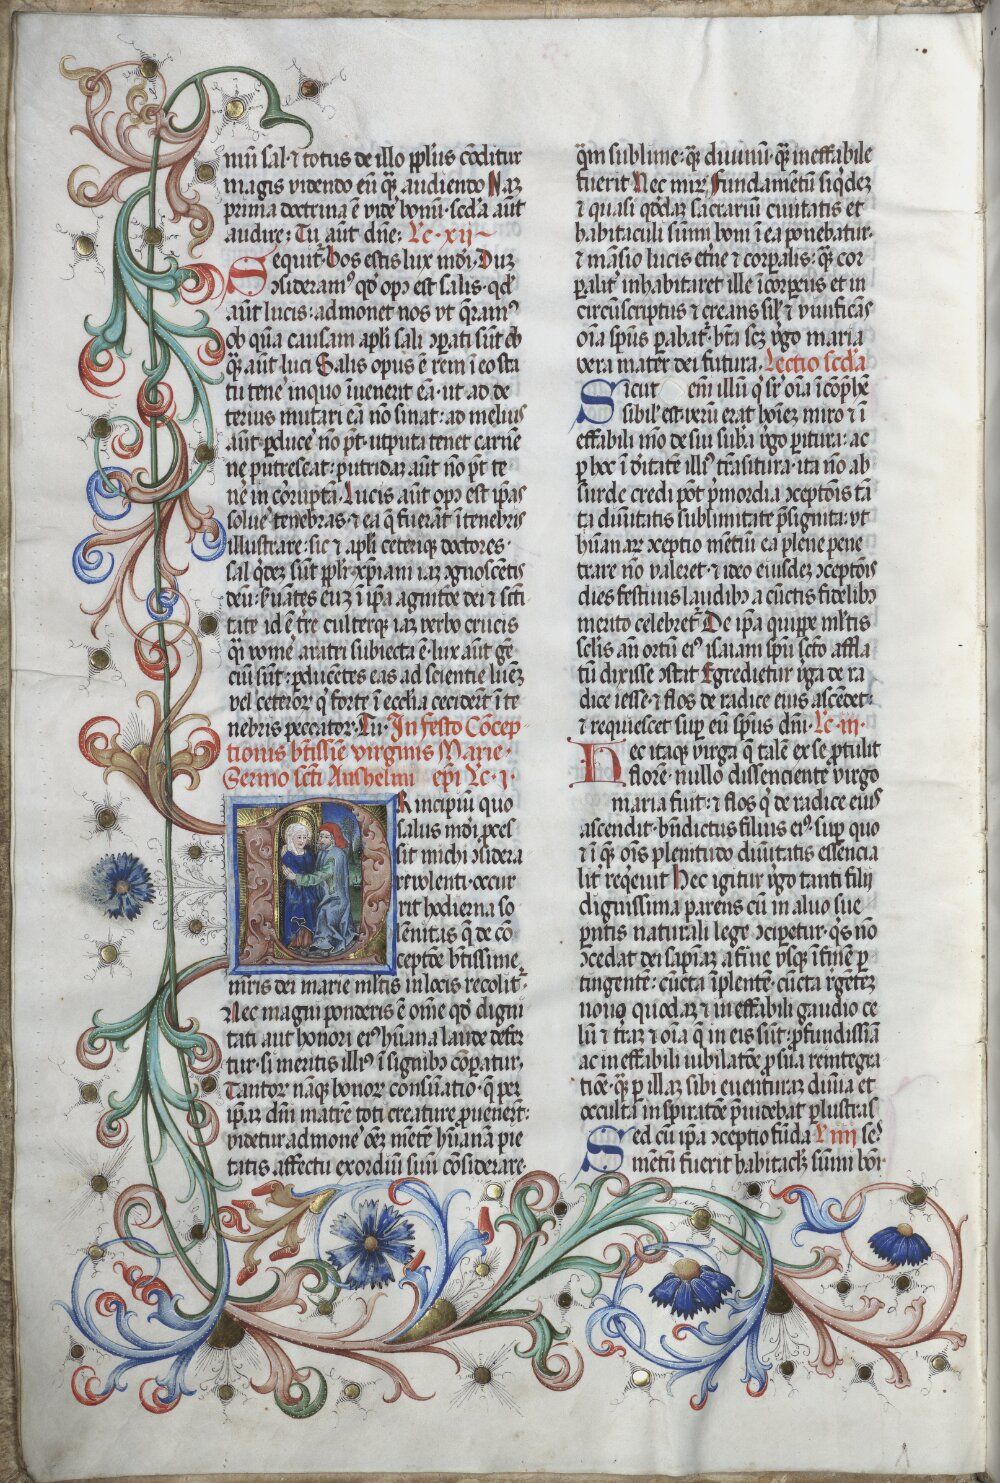 mū sal· ⁊ totus de illo ꝓpłus cōditur
magis videndo eū q̄ꝫ audiendo Naꝫ
prima doctrina ē vide bonū· sed'a aūt
audire: Tu aūt dn̄e: Lc· xii·
Sequit᷑ Vos estis lux mdi· Duꝫ
ꝯsideramꝰ qd' opꝰ est salis· qd'
aūt lucis: admonet nos vt q̄ramꝰ
ob qua causam apli sali ꝯparati sūt ob
q̄ꝫ aūt luci Salis opus ē rem ī eo sta
tu tene in quo īuenerit eā· ut ad de
terius mutari eā nō sinat: ad melius
aūt ꝑduce nō pt· utputa tenet carnē
ne putrescat: putridaꝫ aūt nō pt te
ne incorruptā· Lucis aūt opꝰ est ipas
solue tenebras· ⁊ ea q̄ fuerāt ī tenebris
illustrare: sic ⁊ apli ceteriqꝫ doctores·
sal q'deꝫ sūt ꝓpli xp̄iani iaꝫ ꝯgnoscētis
deū: ẜuātes euꝫ ī ipa agnitōe dei ⁊ scti
tate id ē tre culterqꝫ iaꝫ verbo crucis
q̄ꝫ vome aratri subiecta ē· lux aūt gē
ciū sūt: ꝓducētes eas ad scientie luēꝫ
vel ceteroꝝ q' forte ī ecclia ceciderūt ī te
nebris peccatoꝝ· Tu· In festo Concep
tionis btissiē virginis Marie·
Sermo scti Anshelmi epi Lc· i·
Principiū quo
salus mdi ꝓces
sit michi ꝯsidera
re volenti· occur
rit hodierna so
lēnitas q̄ de cō
ceptōe btissime
mr̄is dei marie mltis in locis recolit᷑·
Nec magni ponderis ē om̄e qd' digni
tati aut honori eiꝰ hūana laude defer
tur· si meritis illiꝰ ī signibꝫ cōparatur·
Tantoꝝ nāqꝫ bonoꝝ consūatio· q̄ per
ipaꝫ dn̄i matrē toti creature ꝓuenerūt:
videtur admone oēꝫ mētē hūanā pie
tatis affectu exordiū suū cōsiderare·
q̄m sublime: q̄ꝫ diuinū· q̄ꝫ ineffabile
fuerit Nec mir̄· Fundamētū siq'deꝫ
⁊ quasi qd'daꝫ sacrariū ciuitatis et
habitaculi sūmi boni ī ea ponebatur·
⁊ māsio lucis et̄ne ⁊ corꝑalis: q̄ꝫ cor
ꝑalit᷑ inhabitaret ille īcorꝑeus et in
circūscriptus ⁊ creans sil' ⁊ viuificās
oīa sp̄us ꝑabat᷑· bta scꝫ v'go maria
vera mater dei futura· Lectio sed'a
Sicut em̄ illū q' sr̄ oīa īcōp̄hē
sibil' est· verū erat hoīeꝫ miro ⁊ ī
effabili mō de sui sub'a v'go ꝑitura: ac
ꝓ hoc ī d'itatē illiꝰ trāsitura· ita nō ab
surde credi pōt ꝓmordia ꝯceptōis tā
ta diuitatis sublimitate p̄signita: vt
hūanaꝝ ꝯceptio mētiū ea plene pene
trare nō valeret· ⁊ ideo eiusdeꝫ ꝯceptōis
dies festiuis laudibꝫ a cūctis fidelibꝫ
merito celebret᷑ De ipa quippe mltis
sclis an̄ ortū eiꝰ isaiam sp̄u scto affla
tū dixisse ꝯstat Egredietur v'ga de ra
dice iesse· ⁊ flos de radice eius ascēdet:
⁊ requiescet sup eū sp̄us dn̄i· Lc· iii·
Hec itaqꝫ virga q̄ talē ex se ꝓtulit
florē· nullo dissenciente virgo
maria fuit: ⁊ flos q' de radice eius
ascendit· bn̄dictus filius eiꝰ· sup quo
⁊ ī q̄ꝫ ois plenitudo diuitatis essencia
lit᷑ req̄euit Hec igitur v'go tanti filii
dignissima parens cū in aluo sue
p̄ntis naturali lege ꝯciperetur· q's nō
ꝯcedat dei sapiaꝫ a fine vsqꝫ ī finē ꝑ
tingentē: cūcta īplentē· cūcta r̄gētēꝫ
nouo quodaꝫ ⁊ ineffabili gaudio ce
lū ⁊ trāꝫ ⁊ oīa q̄ in eis sūt: ꝓfundissīa
ac ineffabili iubilatōe ꝓ sūa reintegra
tiōē· q̄ꝫ ꝑ illaꝫ sibi euenturaꝫ diuīa et
occultā inspiratōe p̄uidebāt ꝑlustrās
Sed cū ipa ꝯceptio fūda Liiii ic
mētū fuerit habitacl'i sūmi boī